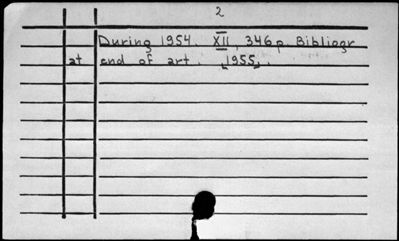 2
During 1954. XII, 346p. Bibliogr
at end of art. [1955].